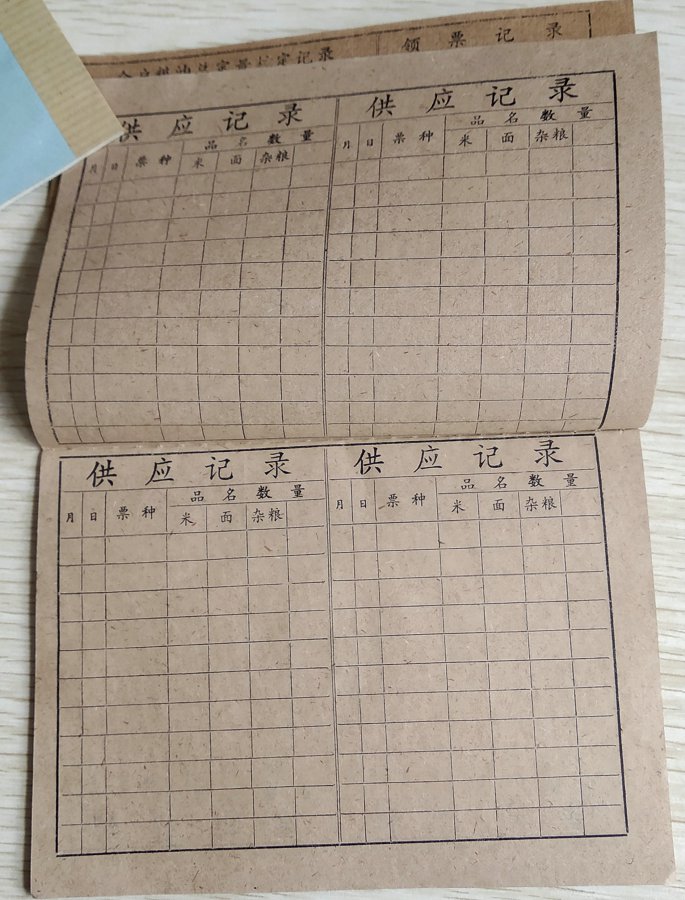 领票记录
定记录
供应记录
品名数量
月 日 票种 米 面 杂粮
供应记录
品名数量
月 日 票种 米 面 杂粮
供应记录
品名数量
月 日 票种 米 面 杂粮
供应记录
品名数量
月 日 票种 米 面 杂粮